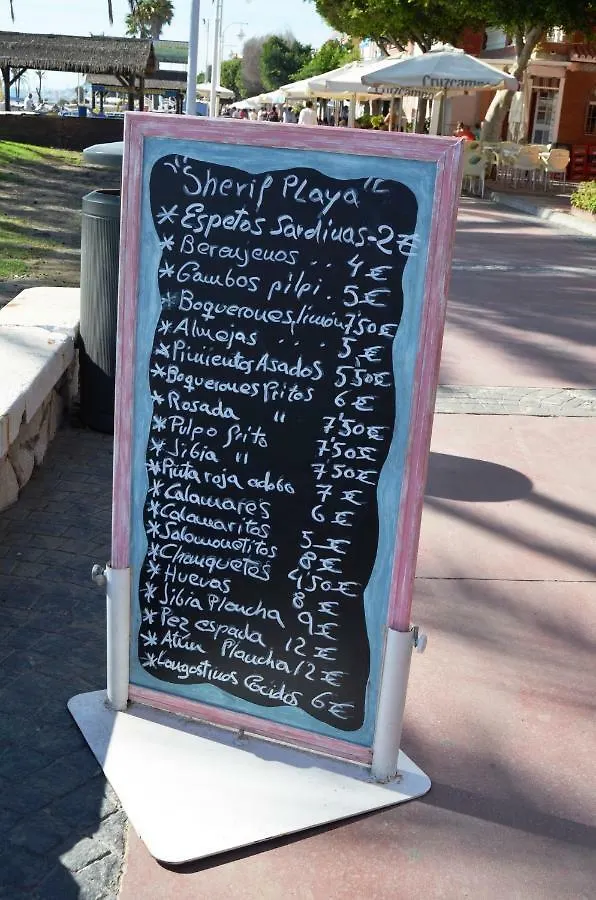 Cruzcampo
"Sherif Playa"
* Espetos Sardinas - 2€
* Berenjenos .. 4€
* Gambos pilpi . 5€
* Boquerones/limón 7,50€
* Almejas .. .. 5,€
* Pimientos Asados 5,50€
* Boquerones Fritos 6€
* Rosada " 7,50€
* Pulpo frito 7,50€
* Jibia " 7,50€
* Pinta roja adobo 7€
* Calamares 6€
* Calamaritos 5€
* Salomonetitos 8€
* Chanquetes 4,50€
* Huevas 8€
* Jibia Plancha 9€
* Pez espada 12€
* Atun Plancha 12€
* Langostinos Cocidos 6€